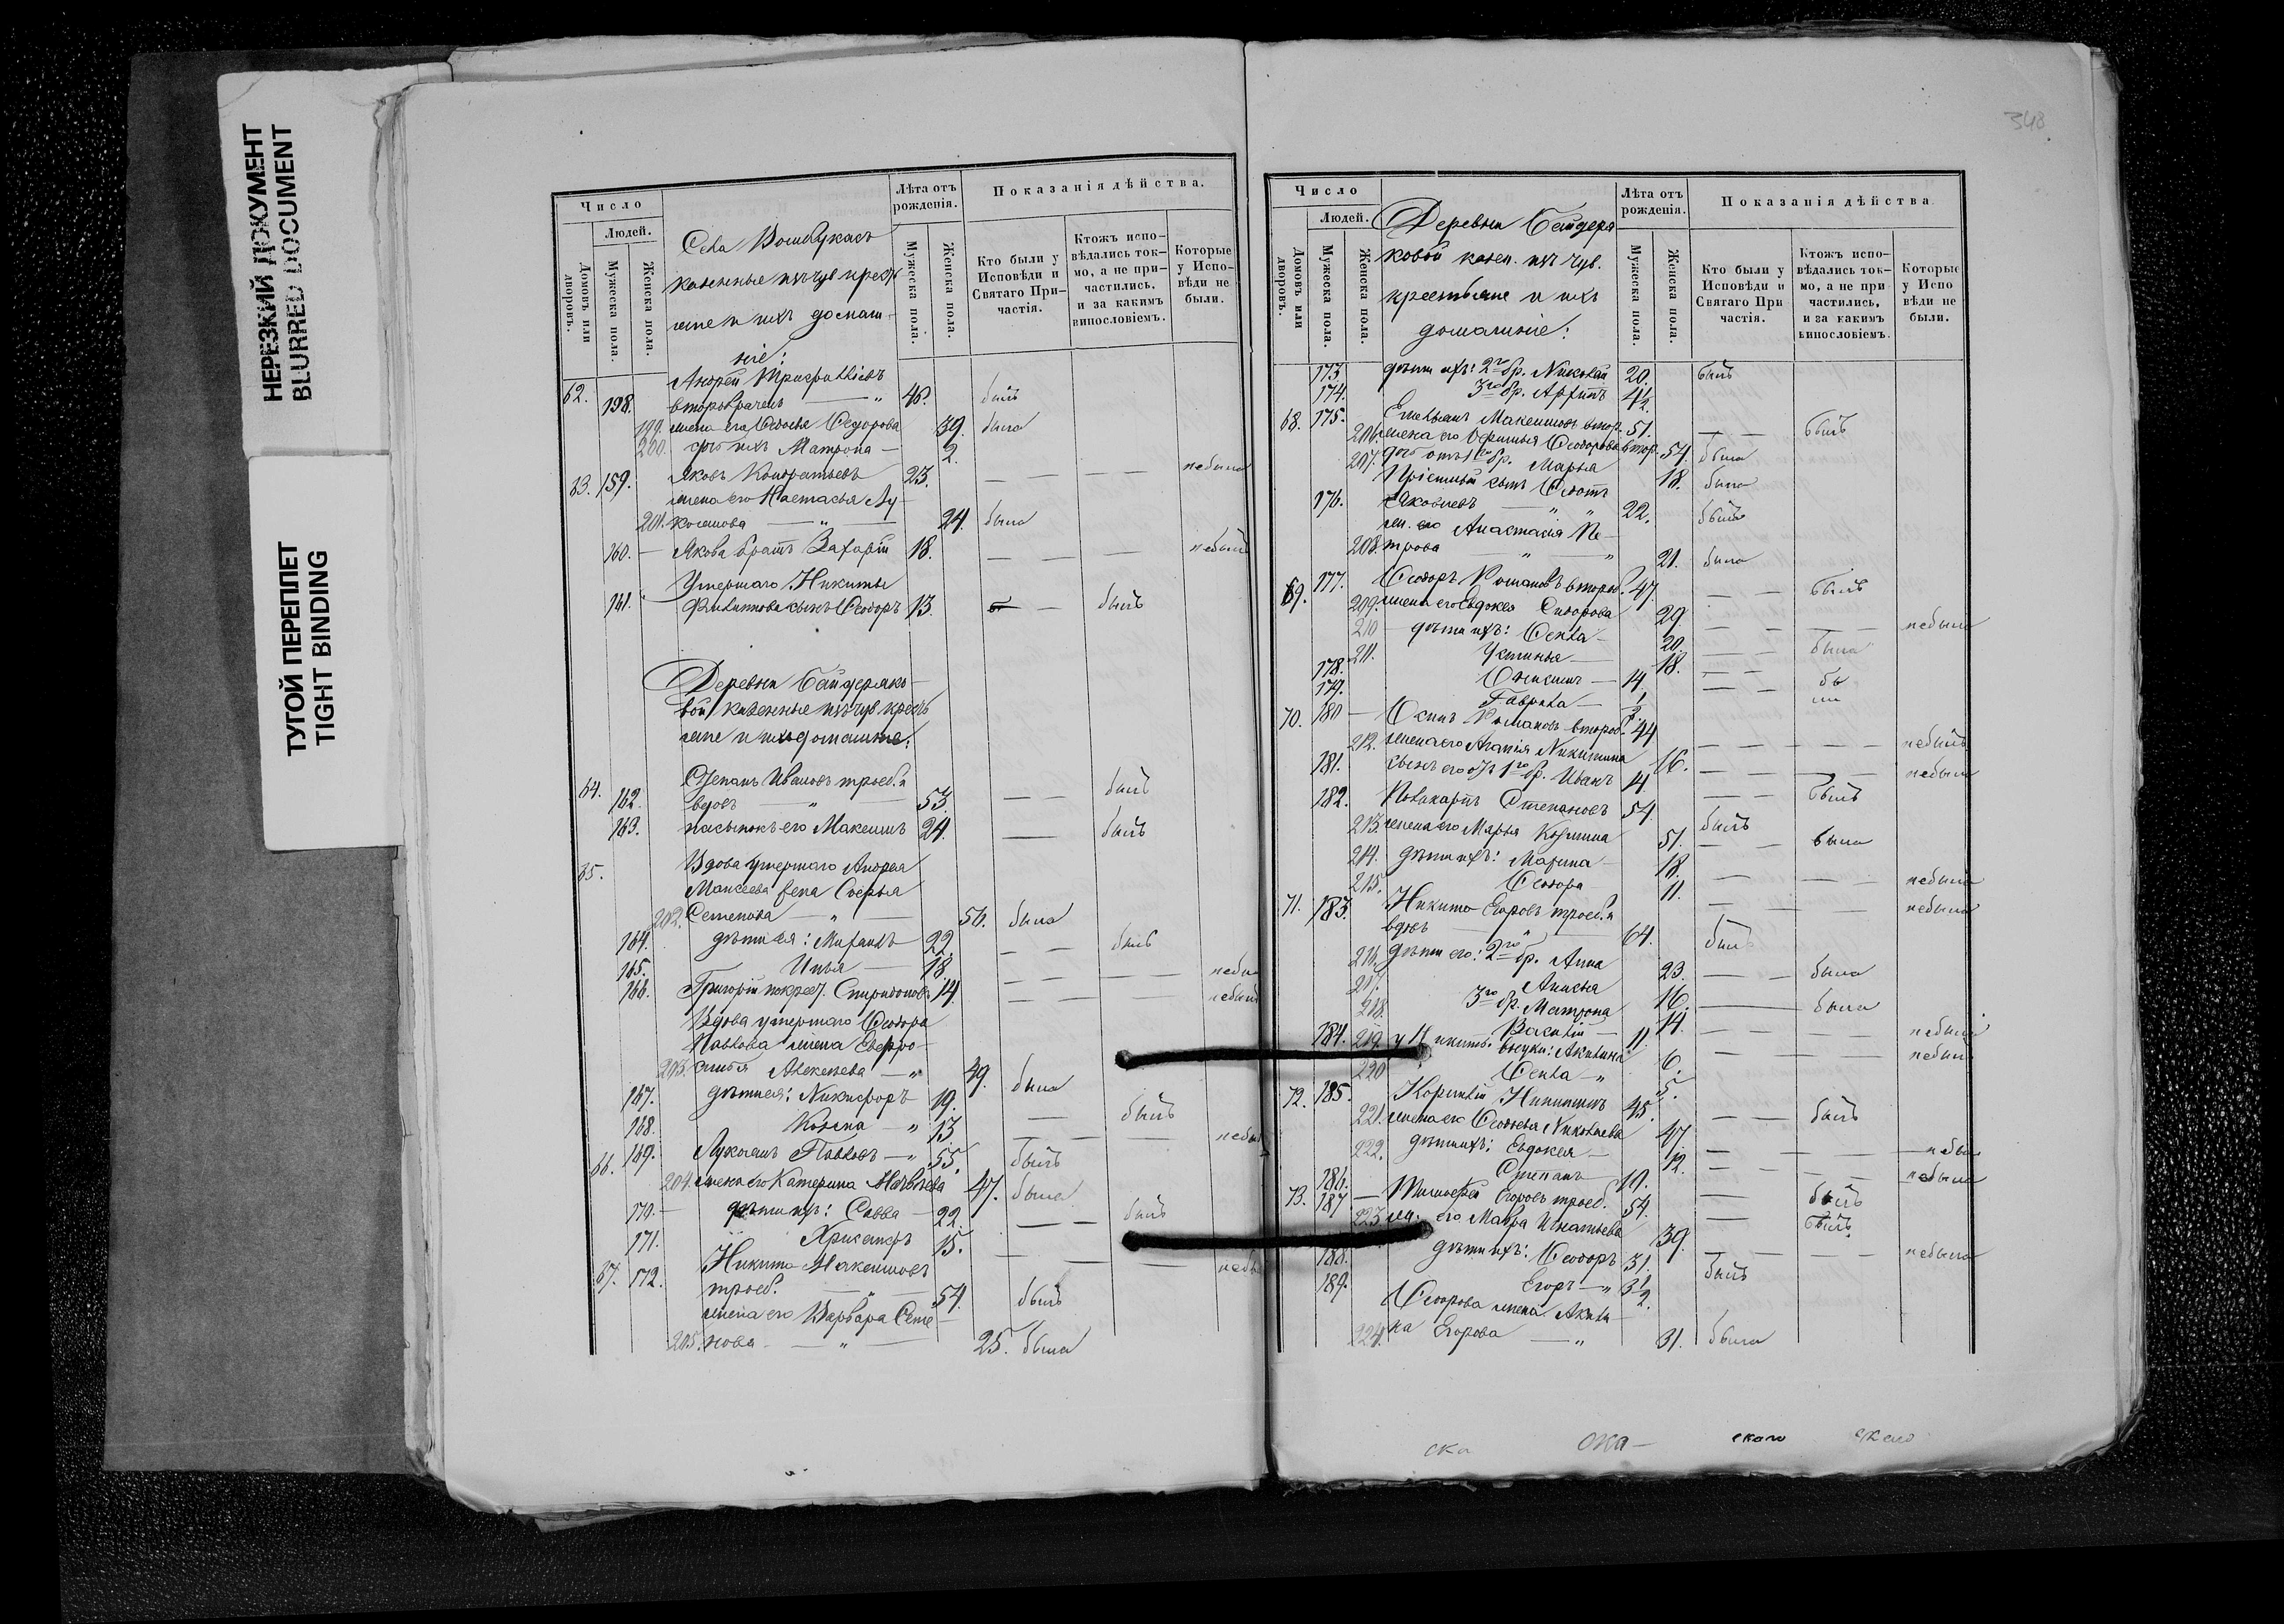 НЕРЕЗКИЙ ДОКУМЕНТ
BLURRED DOCUMENT
ТУГОЙ ПЕРЕПЛЕТ
TIGHT BINDING
Число
Людей.
Домовъ или дворовъ.
Мужеска пола.
Женска пола.
Лѣта отъ рожденія.
Мужеска пола.
Женска пола.
Показанія дѣйства.
Кто были у Исповѣди и Святаго Причастія.
Ктожъ исповѣдались токмо, а не причастились, и за какимъ винословіемъ.
Которые у Исповѣди не были.
Села
казенные изъ чув крестъ
яне и ихъ домаш-
ніе:
62. 198. Андрей
второбрачен — " 48. былъ
199. жена его Ѳедосья Ѳедорова 39. была
200. дочь ихъ Матрона — 2.
63. 159. Яковъ Кондратьевъ 23. — — — небыла
жена его Настасья Лу-
201. коянова — " — 24. была
160. — Якова братъ Захарій 18. — — — небылъ
Умершаго Никиты
161. Филиппова сынъ Ѳеодоръ 13. — былъ
Деревни Байдеряко-
вой казенные изъ чув крестъ
яне и ихъ домашніе:
64. 162. Степанъ Ивановъ троеб.й
вдовъ — " — 53. — — былъ
163. пасынокъ его Максимъ 24. — — былъ
65. Вдова умершаго Андрея
Моисеева жена Софья
202. Семенова — " — 56. была
164. дѣти ея: Михаилъ 22. — — былъ
165. Илья — 18. — — — небы
166. Григорій Спиридоновъ 14. — — — небылъ
Вдова умершаго Ѳеодора
Павлова жена Евфро-
203. синья Алексеева — " 49. была
167. дѣти ея: Никифоръ 19. — былъ
168. Козма — " 13. — — — небы
66. 169. Лукоянъ Павловъ — " 55. былъ
204. жена его Катерина Матвѣева 47. была
170. — дѣти ихъ: Савва — 22. — — былъ
171. 15. — — — небы
67. 172. Никита Максимовъ
троеб. — " — 54. былъ
жена его Варвара Семе-
205. нова — " — 25. была
348.
Число
Людей.
Домовъ или дворовъ.
Мужеска пола.
Женска пола.
Деревни Байдеря
ковой казен. изъ чув.
крестьяне и ихъ
домашніе:
Лѣта отъ рожденія.
Мужеска пола.
Женска пола.
Показанія дѣйства
Кто были у Исповѣди и Святаго При частія.
Ктожъ исповѣдались токмо, а не при частились, и за какимъ винословіемъ.
Которые у Испо вѣди не были.
173. дѣти ихъ: 2го бр. Николай 20. былъ
174. 3го бр. Архипъ 4½.
68. 175. Емельянъ Максимовъ втор. 51. — — былъ
206. жена его Ѳеодорова втор. 54. была
207. дочь отъ 1го бр. Марья 18. была
Пріемный сынъ Ѳедотъ
176. Яковлевъ — " " 22. былъ
жен. его Анастасія Пе-
208. трова — " — " 21. была
69. 177. Ѳеодоръ Романовъ второб. 47. — — былъ
209. жена его Евдокея Сидорова 29. — — — небыла
210 — дѣти ихъ: Ѳекла — 20. — — была
211. Устинья — 18. — —
178. Онисимъ — 14. — — бы
179. Гаврила — ½
70. 180 — Осипъ Романовъ второб. 44 — — — небылъ
212. жена его Агапія Никитина 16. — — — небыла
181. сынъ его отъ 1го бр. Иванъ 14. — — былъ
182. Поликарпъ Степановъ 54. былъ
213. жена его Марья Козмина 51. — — была
214. дѣти ихъ: Марина — 18. — — — небыла
215. Ѳеодора 11. — — — небыла
71. 183. Никита Егоровъ троеб.й
вдовъ — " — 64. былъ
216. дѣти его: 2го бр. Анна 23. — — была
217. Анисья 16. — была
218. 3го бр. Матрона 14. — — — небыла
184. Василій — 11. — — — небылъ
219. у Никиты внуки: Акилина 6.
220 Ѳекла — " 5.
72. 185. Корнилій Никитинъ 45. — — былъ
221. жена его Ѳеодосья Николаева 47. — — — небыл
222. дѣти ихъ: Евдокея — 12. — — — небыла
186. Степанъ 19. — былъ
73. 187 — Тимофей Егоровъ троеб. 54. — былъ.
223 жен. его Мавра Игнатьева 39. — — — небыла
188. дѣти ихъ: Ѳеодоръ 31. былъ
189. Егоръ — " 3½.
Ѳеодорова жена Акили-
224. на Егорова — " 31. была
ска ока — скаго скаго